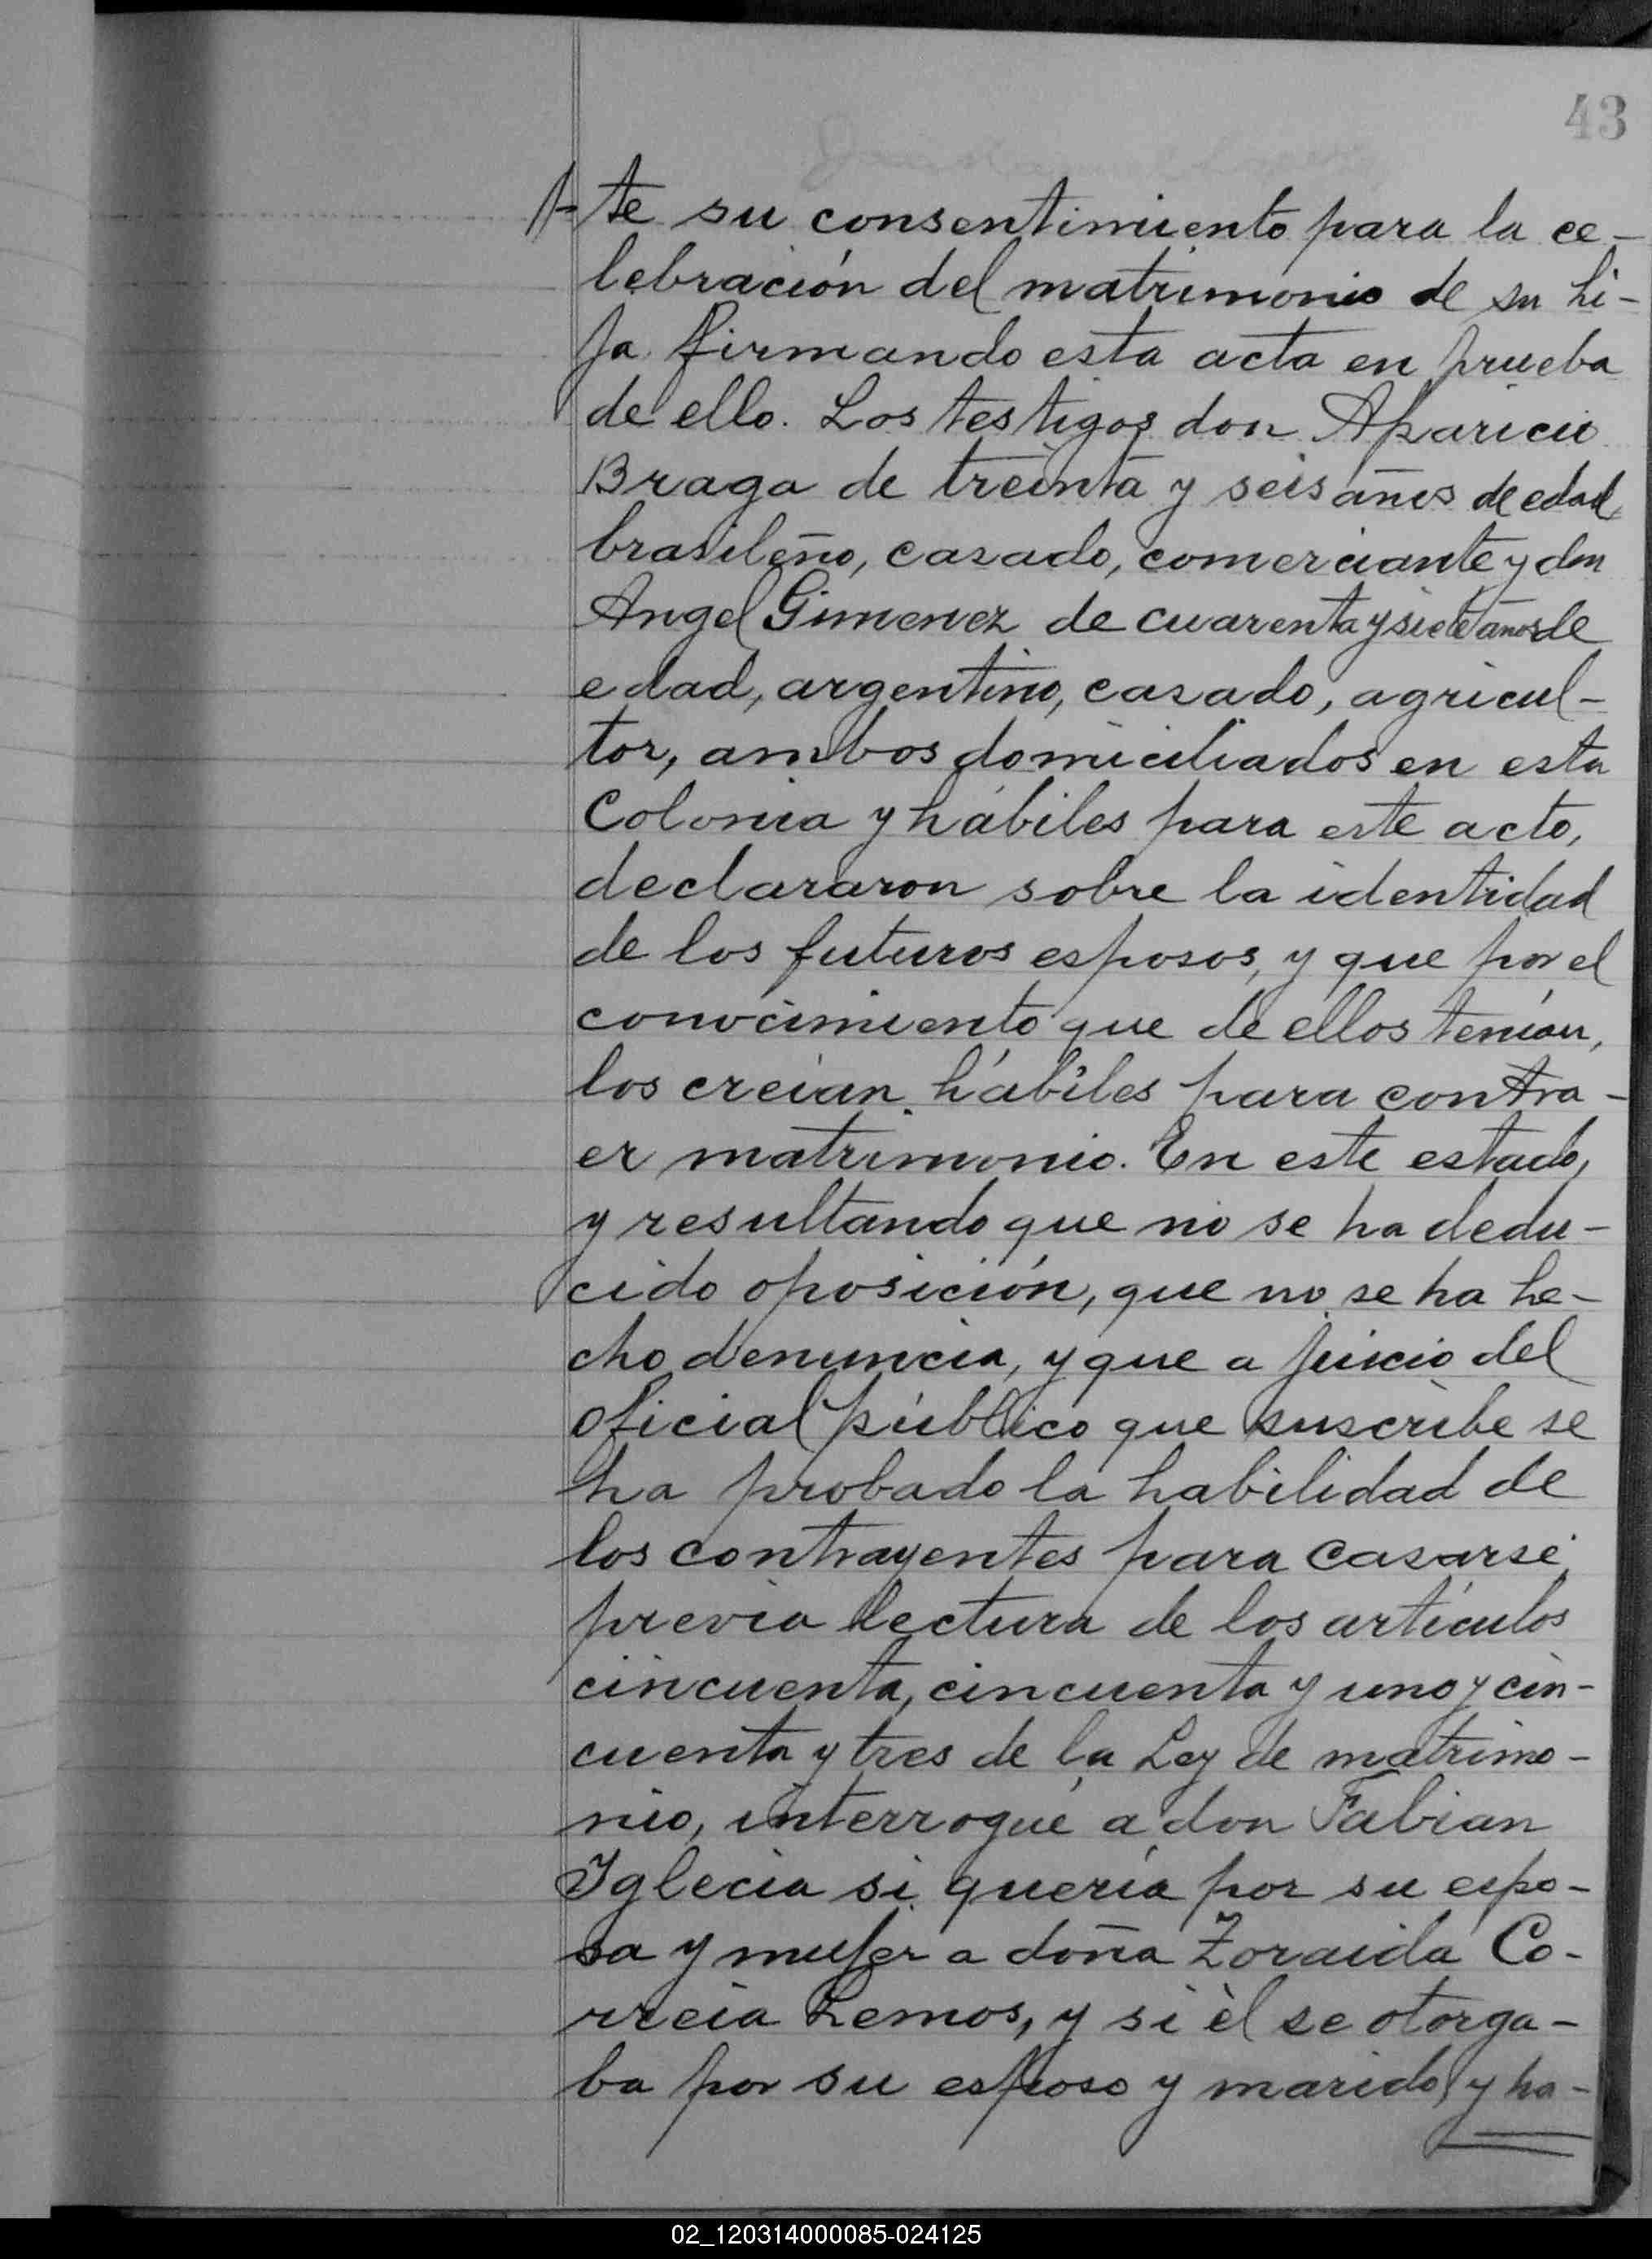 43
te su consentimiento para la ce-
lebración del matrimonio de su hi-
ja firmando esta acta en prueba
de ello. Los testigos don Aparicio
Braga de treinta y seis años de edad
brasileño, casado, comerciante y don
Angel Gimenez de cuarenta y siete años de
edad, argentino, casado, agricul-
tor, ambos domiciliados en esta
Colonia y hábiles para este acto,
declararon sobre la identidad
de los futuros esposos, y que por el
conocimiento que de ellos tenían,
los creían hábiles para contra-
er matrimonio. En este estado,
y resultando que no se ha dedu-
cido oposición, que no se ha he-
cho denuncia, y que a juicio del
oficial público que suscribe se
ha probado la habilidad de
los contrayentes para casarse,
previa lectura de los artículos
cincuenta, cincuenta y uno y cin-
cuenta y tres de la Ley de matrimo-
nio, interrogué a don Fabian
Iglecia si quería por su espo-
sa y mujer a doña Zoraida Co-
rreia Lemos, y si él se otorga-
ba por su esposo y marido, y ha-
02_120314000085-024125